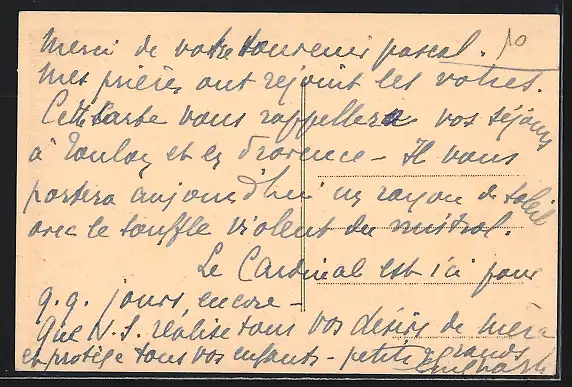 Merci de votre souvenir pascal. 10
Mes prières ont rejoint les votres.
Cette carte vous rappellera vos séjours
à Toulon et en Provence – Il vous
portera aujourd'hui un rayon de soleil
avec le souffle violent du mistral.
Le Cardinal est ici pour
q.q. jours encore –
Que N.S. réalise tous vos désirs de mère
et protège tous vos enfants – petits & grands